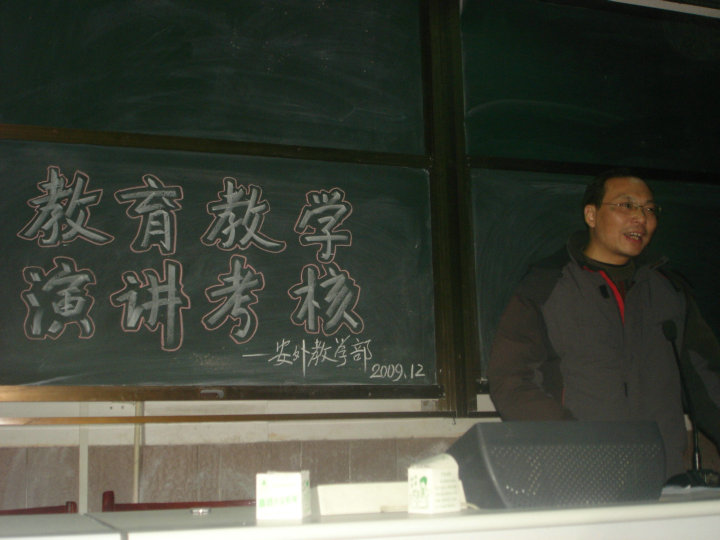 教育教学
演讲考核
—安外教学部
2009.12